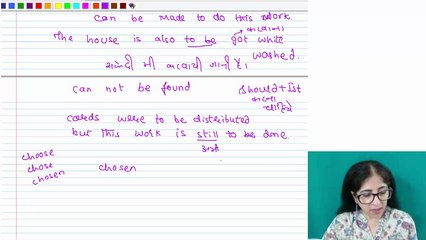 can be made to do this work.
करवाना
The house is also to be got white
washed.
सफेदी भी करवायी जानी है।
can not be found
Should + Ist
करना
चाहिये
cards were to be distributed
but this work is still to be done
अभी
choose
chose
chosen
chosen